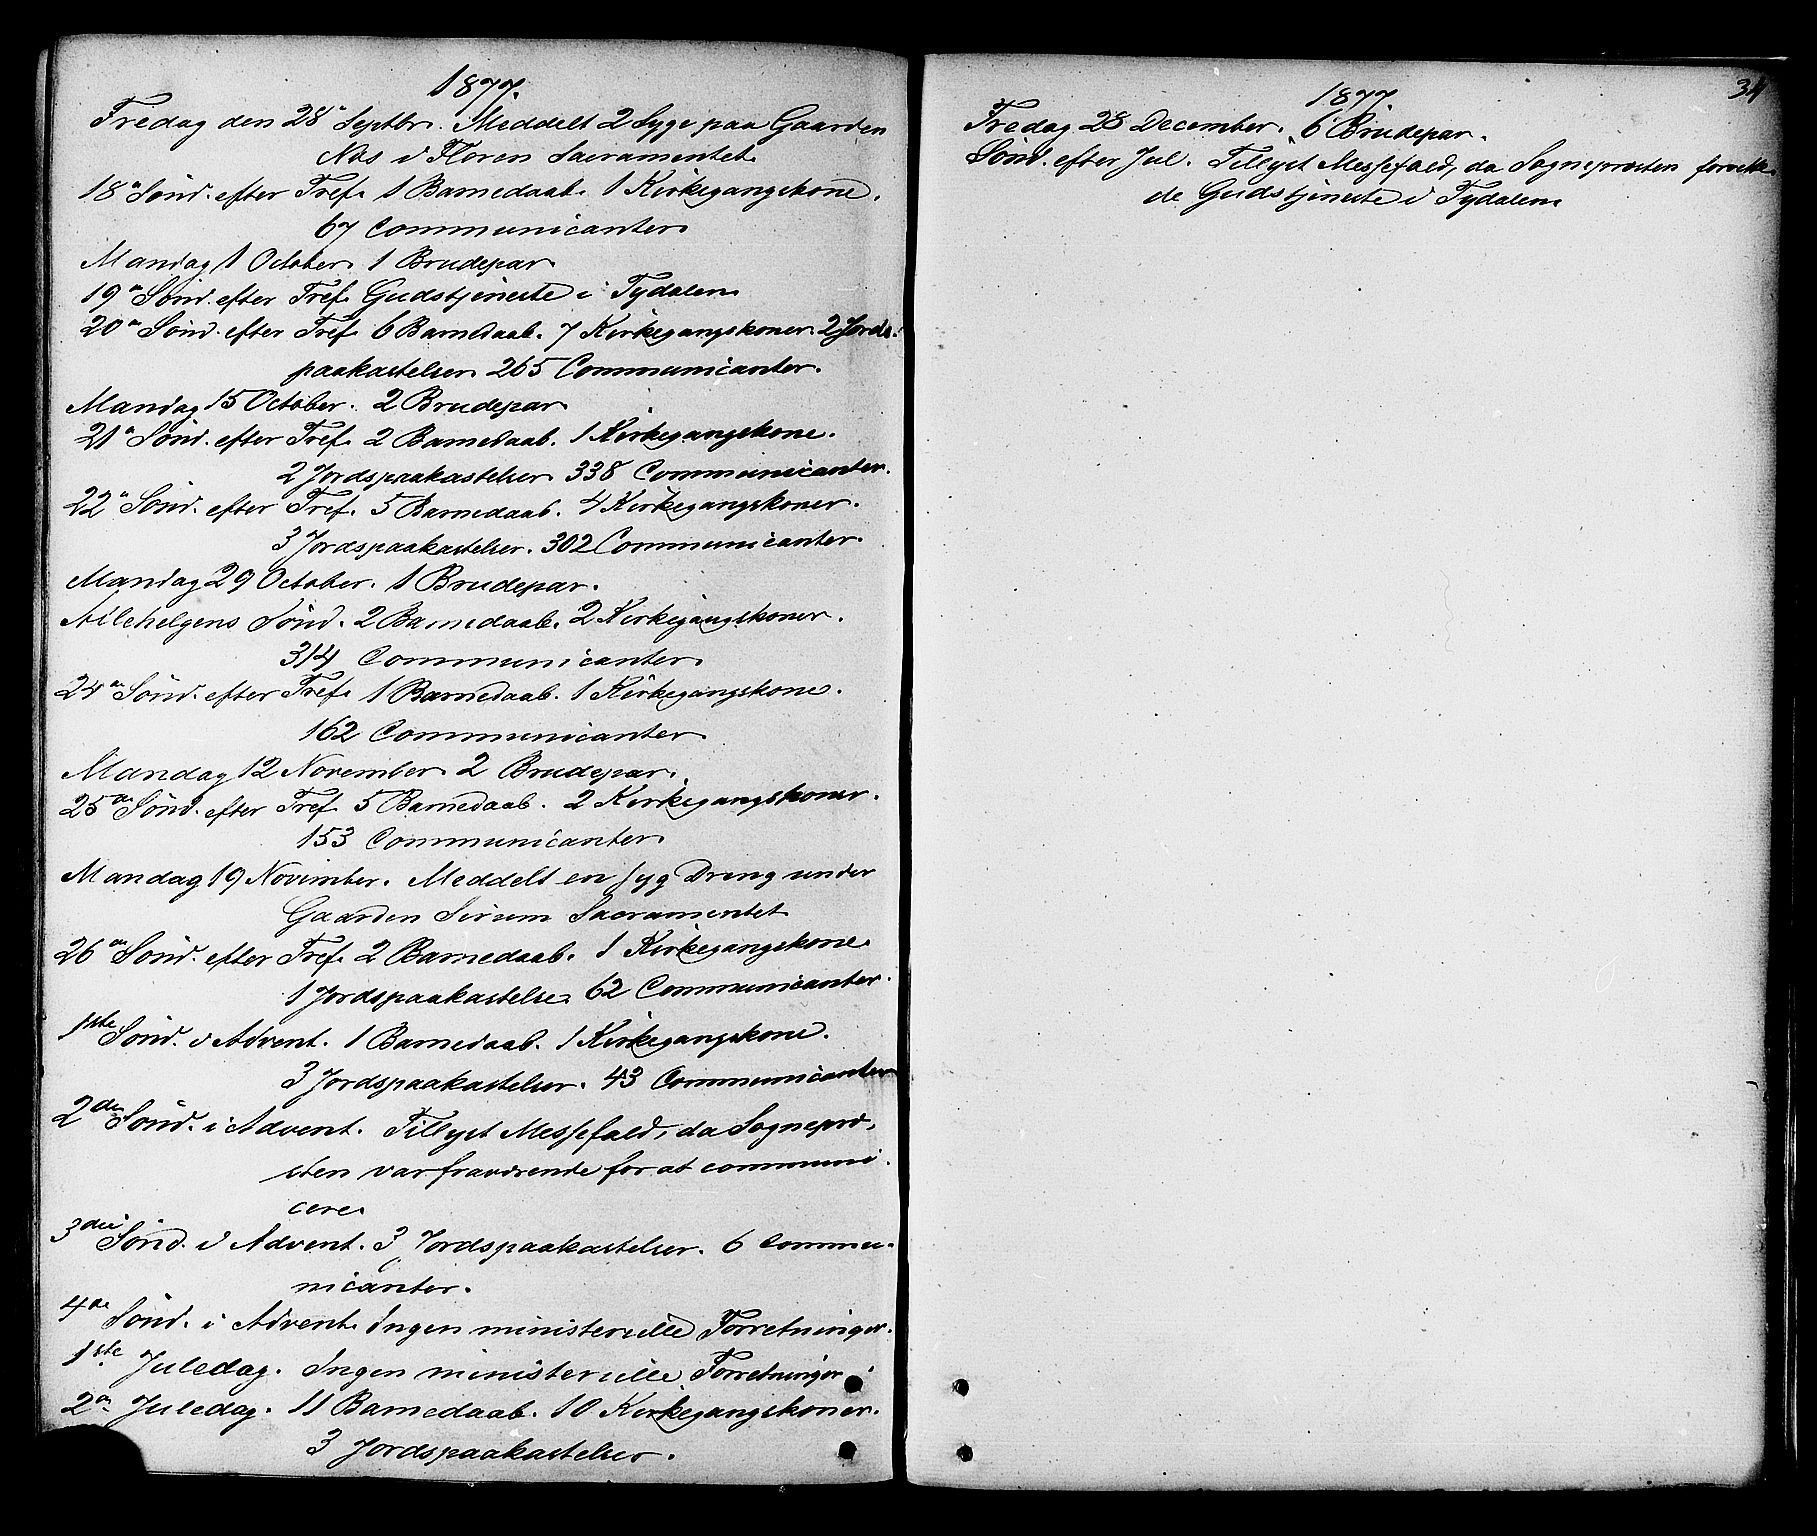 1877.
Fredag den 28de Septbr. Meddelt 2 Syge paa Gaarden
Næs i Floren Sacramentet.
18de Sønd. efter Tref. 1 Barnedaab. 1 Kirkegangskone.
67 Communicanter.
Mandag 1 October. 1 Brudepar.
19de Sønd. efter Tref. Gudstjeneste i Tydalen.
20de Sønd. efter Tref. 6 Barnedaab. 7 Kirkegangskoner. 2 Jords-
paakastelser. 265 Communicanter.
Mandag 15 October. 2 Brudepar.
21de Sønd. efter Tref. 2 Barnedaab. 1 Kirkegangskone.
2 Jordspaakastelser. 338 Communicanter.
22de Sønd. efter Tref. 5 Barnedaab. 4 Kirkegangskoner.
3 Jordspaakastelser. 302 Communicanter.
Mandag 29 October. 1 Brudepar.
Allehelgens Sønd. 2 Barnedaab. 2 Kirkegangskoner.
314 Communicanter.
24de Sønd. efter Tref. 1 Barnedaab. 1 Kirkegangskone.
162 Communicanter.
Mandag 12 November. 2 Brudepar.
25de Sønd. efter Tref. 5 Barnedaab. 2 Kirkegangskoner.
153 Communicanter.
Mandag 19 November. Meddelt en syg Dreng under
Gaarden Sirum Sacramentet
26de Sønd. efter Tref. 2 Barnedaab. 1 Kirkegangskone.
1 Jordspaakastelse. 62 Communicanter.
1ste Sønd. i Advent. 1 Barnedaab. 1 Kirkegangskone.
3 Jordspaakastelser. 43 Communicanter
2den Sønd. i Advent. Tillyst Messefald, da Sognepræ-
sten var fraværende for at communi-
cere.
3die Sønd. i Advent. 3 Jordspaakastelser. 6 Commu-
nicanter.
4de Sønd. i Advent. Ingen ministerielle Forretninger.
1ste Juledag. Ingen ministerielle Forretninger.
2den Juledag. 11 Barnedaab. 10 Kirkegangskoner.
3 Jordspaakastelser.
34
1877.
Fredag 28 December. 6 Brudepar.
Sønd. efter Jul. Tillyst Messefald, da Sognepræsten forrette-
de Gudstjeneste i Tydalen.